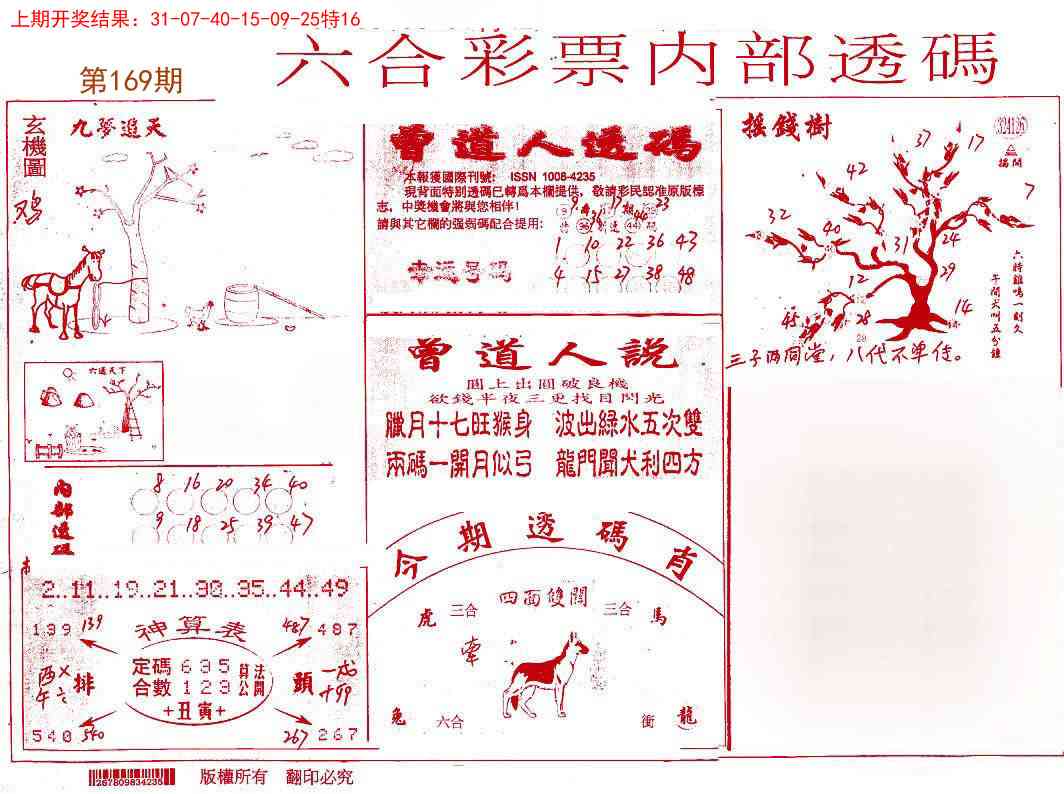 上期开奖结果：31-07-40-15-09-25特16
六合彩票内部透碼
第169期
玄機圖
九夢追天
鸡
六道天下
內部透碼
8 16 20 34 40
9 18 25 39 47
2..11..19..21..30..35..44..49
139 139
神算表
487 487
定碼 635
合數 123
算法公開
+丑寅+
排
頭
540 540
267 267
曾道人透碼
本報獲國際刊號： ISSN 1008-4235
現背面特别透碼已轉爲本欄提供，敬請彩民認准原版標
志，中獎機會將與您相伴！
請與其它欄的强弱碼配合提用：
9 17 23
1 10 22 36 43
幸運号码
4 15 27 38 48
曾道人説
圓上出圓破良機
欲錢半夜三更找目閃光
臘月十七旺猴身 波出綠水五次雙
兩碼一開月似弓 龍門聞犬利四方
今期透碼肖
四面雙開
虎 三合
三合 馬
牽
兔 六合
衝 龍
摇錢樹
37 17
42
7
32
40
31 24
29
12
14
45
28
六時雞鳴一刻久
午間犬叫五分鐘
三子两同堂，八代不单传。
267809834235
版權所有 翻印必究